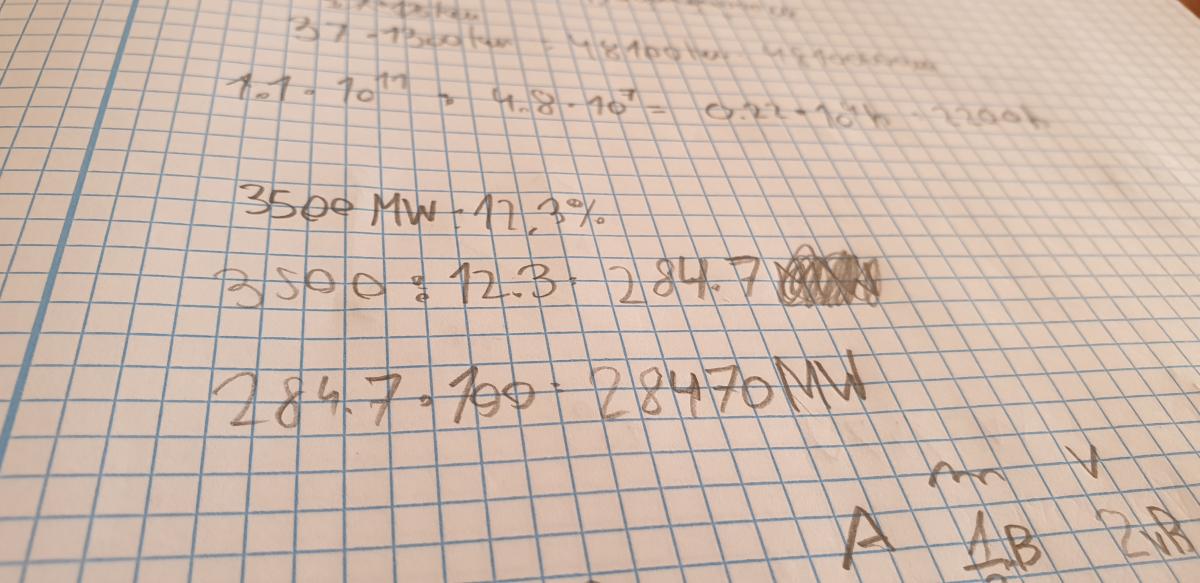 37 · 1300 km = 48100 km
1.1 · 10¹¹ : 4.8 · 10⁷ = 0.22 · 10⁴ h = 2200h
3500 MW = 12.3%
3500 : 12.3 = 284.7
284.7 · 100 = 28470 MW
m v
A 1B 2vB